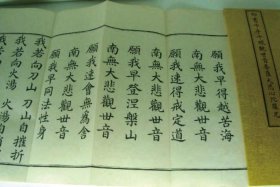 願我早得越苦海
南無大悲觀世音
願我速得戒定道
南無大悲觀世音
願我早登涅槃山
南無大悲觀世音
願我速會無為舍
南無大悲觀世音
願我早同法性身
我若向刀山 刀山自摧折
我若向火湯 火湯自